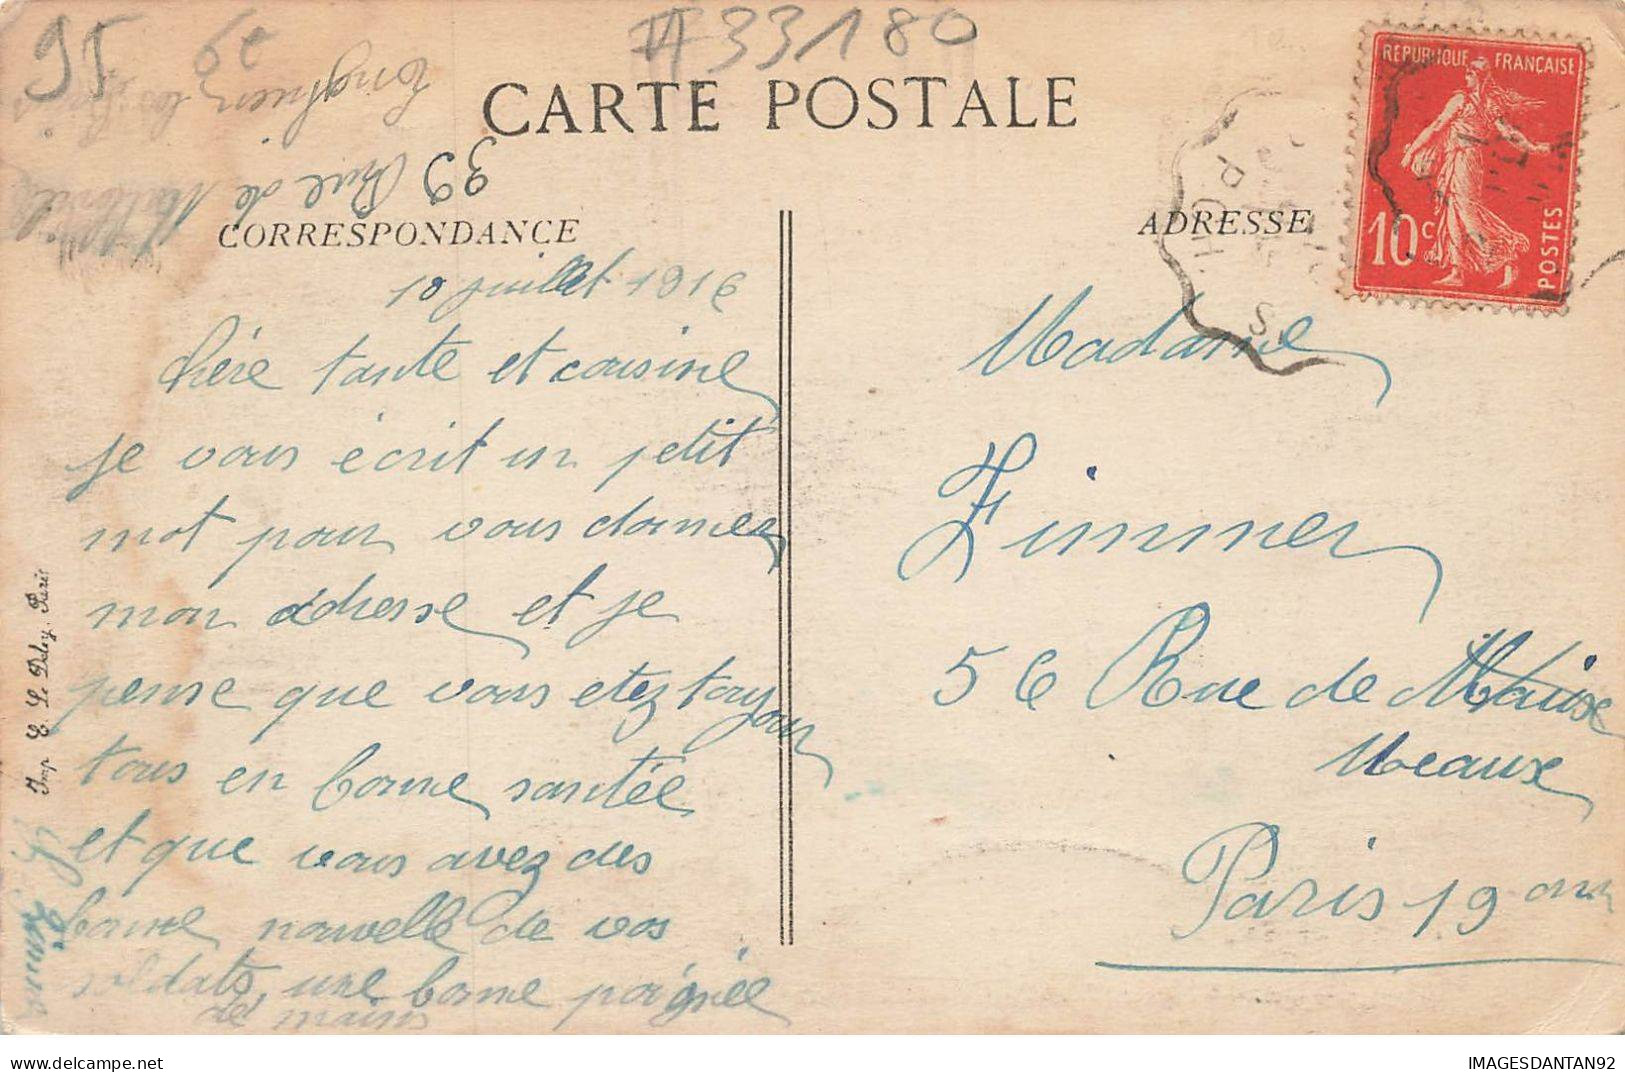 95
#33180
CARTE POSTALE
39 Rue de
CORRESPONDANCE
ADRESSE
REPUBLIQUE FRANÇAISE
10c
POSTES
10 juillet 1916
chère tante et cousine
je vous écrit un petit
mot pour vous donner
mon adresse et je
pense que vous etez toujour
tous en bonne santée
et que vous avez des
bonne nouvelle de vos
soldats, une bonne poignée
de mains
Zimmer
Imp. E. Le Deley, Paris
Madame
Zimmer
56 Rue de
Meaux
Paris 19
IMAGESDANTAN92